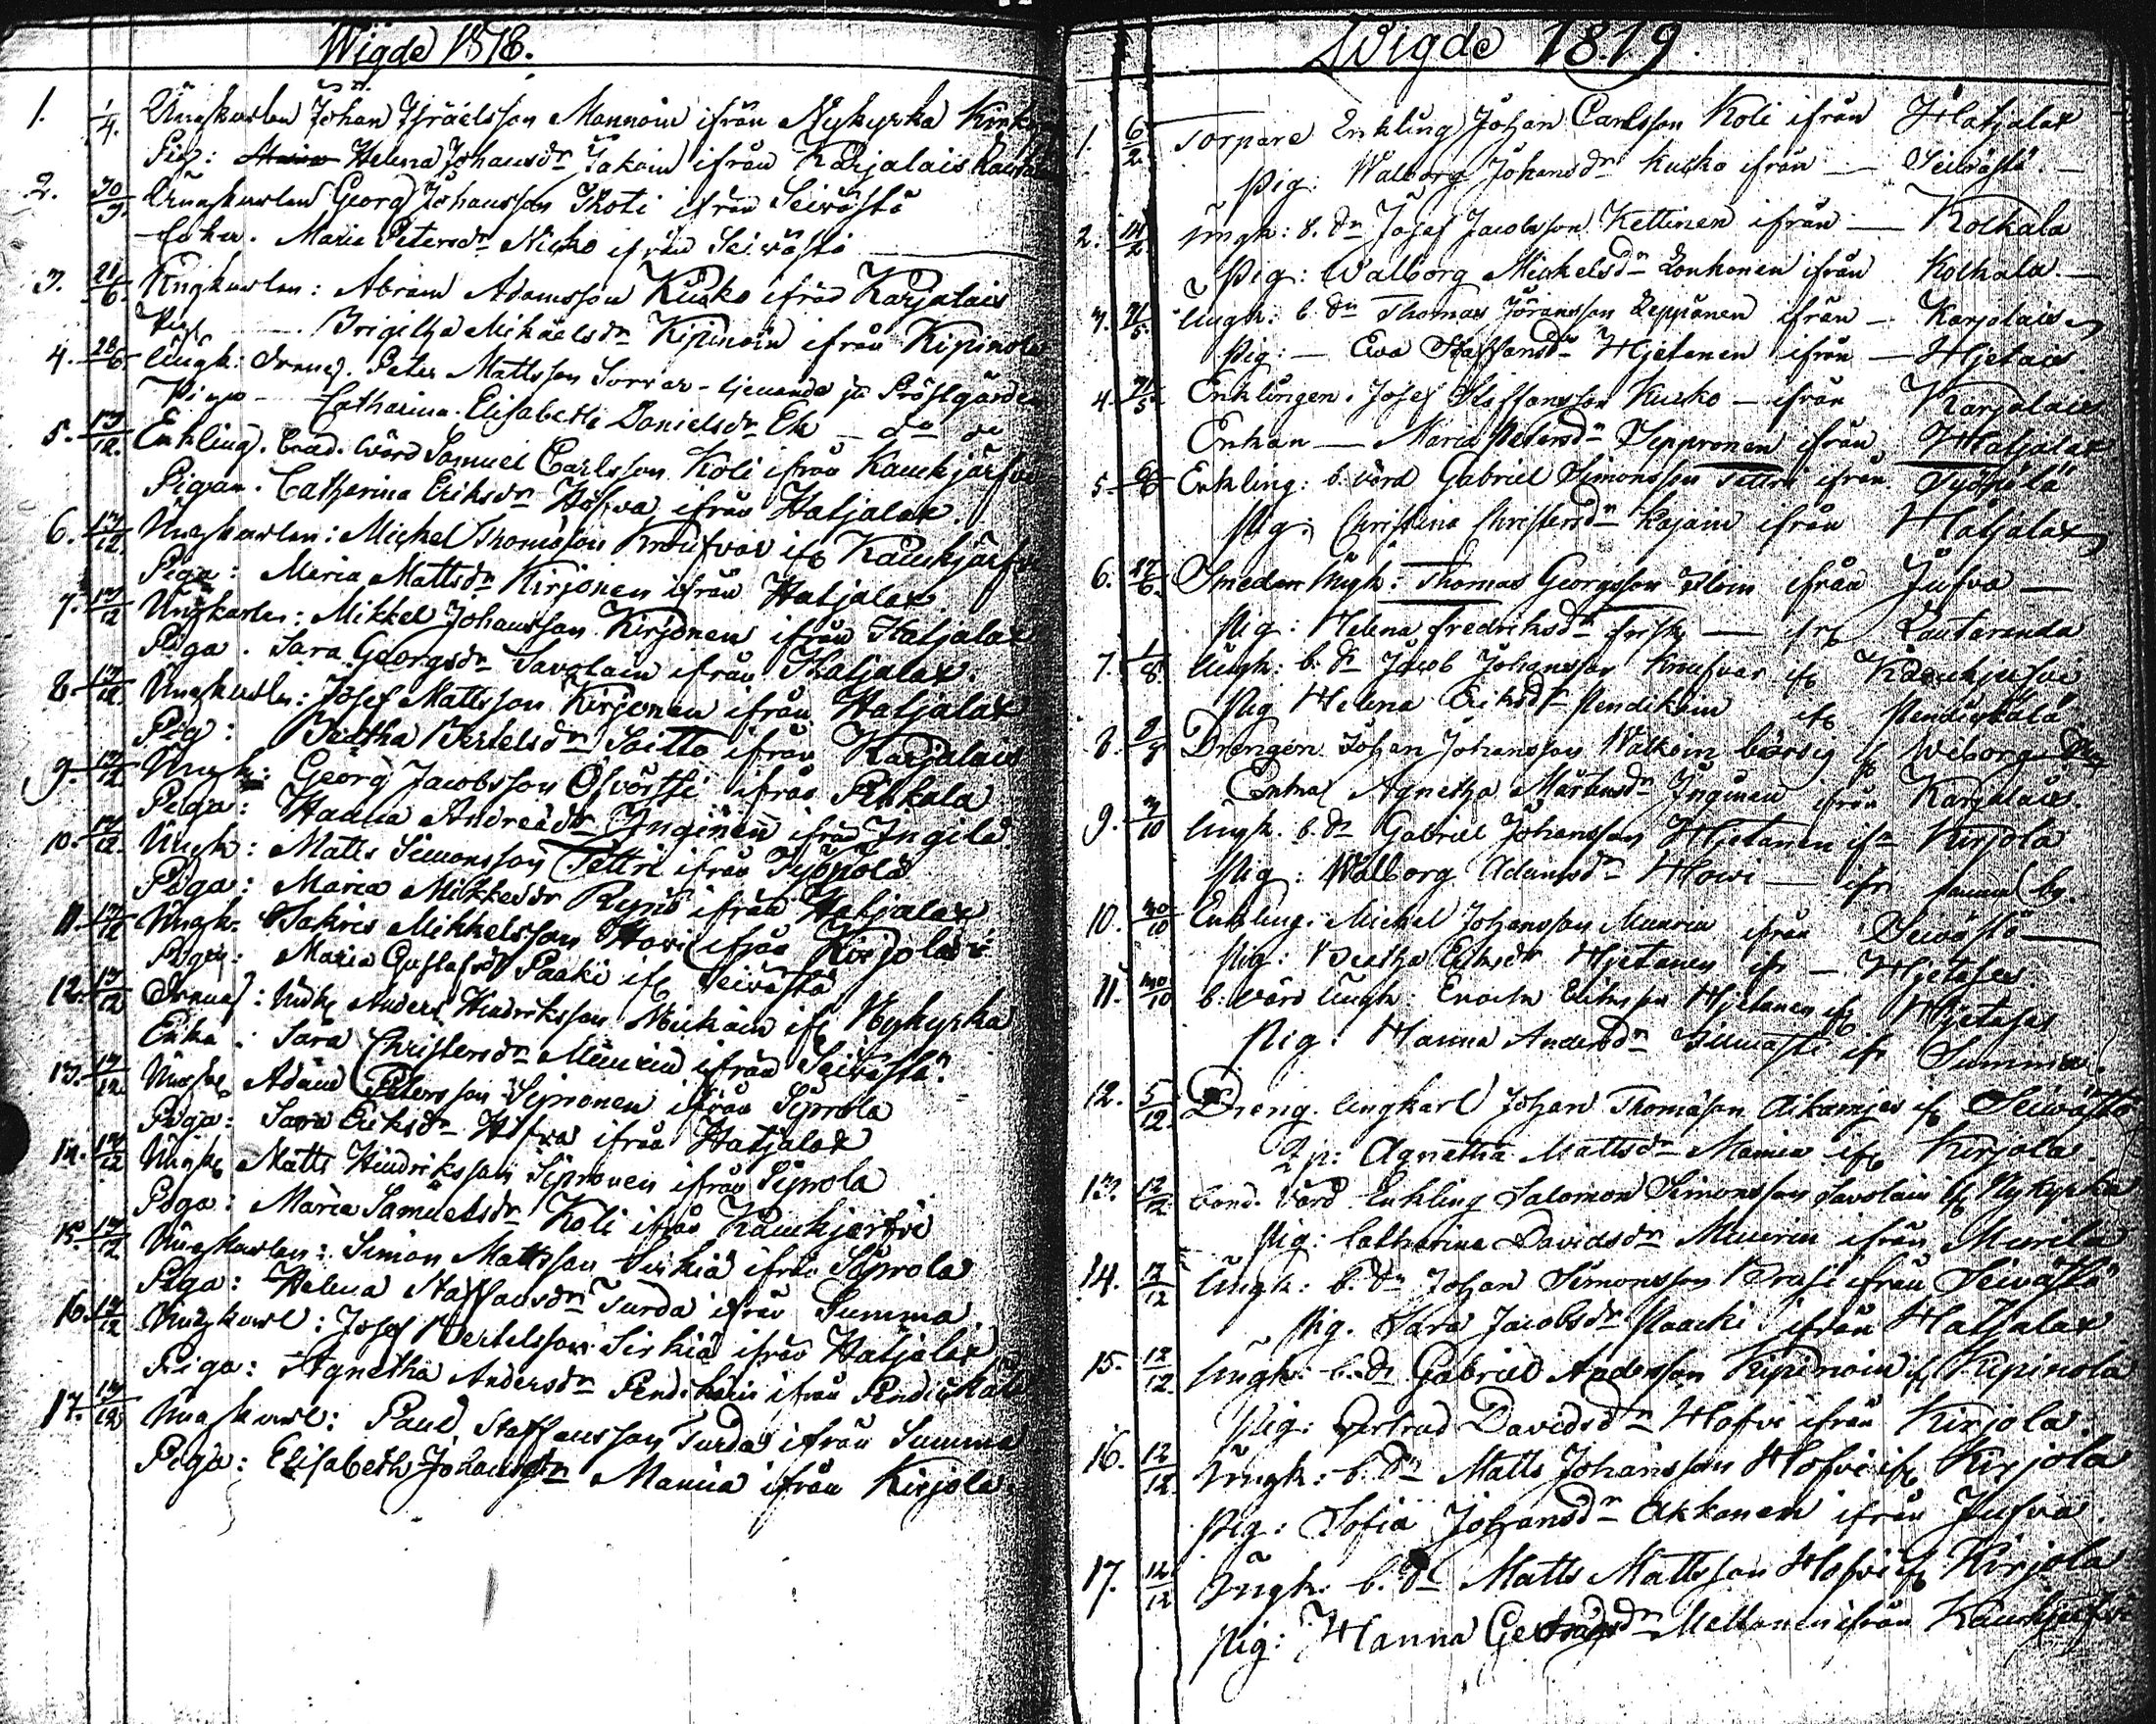 Wigde 1818.
1. 1/4. Ungkarlen Johan Israelsson Mannoin ifrån Nykyrka
Pig: Helena Johansdr Jakoin ifrån Karjalais
2. Ungkarlen Georg Johansson Ikoti ifrån Seivästö
Enka. Maria Petersdr Nicko ifrån Seivästö
3. 21/6. Ungkarlen: Abram Adamsson Kusko ifrån Karjalais
Pig Brigitha Mikaelsdr Kipinoin ifrån Kipinola
4. 28/6 Ungk: Dreng. Peter Mattsson Sorvar tjenande på Pröstgården
Piga Catharina Elisabeth Danielsdr Ek do do
5. 13/12. Enkling. bond. wärd Samuel Carlsson Koli ifrån Kaukjärfvi
Pigan. Catharina Eriksdr Hofva ifrån Hatjalax.
6. 13/12 Ungkarlen: Michel Thomasson Knufvar if Kaukjärfvi
Piga: Maria Mattsdr Kirjonen ifrån Hatjalax.
7. 13/12 Ungkarlen: Mikkel Johansson Kirjonen ifrån Hatjalax
Piga. Sara Georgsdr Savolain ifrån Hatjalax.
8. 13/12 Ungkarlen: Josef Mattsson Kirjonen ifrån Hatjalax
Pig: Beatha Bertelsdr Soitto ifrån Karjalais
9. 13/12. Ungk: Georg Jacobsson ifrån Pihkala
Piga: Hanna Andreasdr Inginen ifrån Ingilä
10. 13/12. Ungk: Matts Simonsson Tettri ifrån Työpölä
Piga: Maria Mikkelsdr Ryno ifrån Hatjalax
11. 13/12 Ungk. Sakris Mikkelsson Hovi ifrån Kirjola
Pigan: Maria Gustafsdr Paaki if Seivästö
12. 13/12 Dreng: Ungk Anders Hindriksson if Nykyrka
Enka: Sara Christersdr Muurin ifrån Seivästö.
13. 13/12 Ungk Adam Petersson Sipronen ifrån Siprola
Piga: Sara Eriksdr Hofva ifrån Hatjalax
14. 13/12 Ungk Matts Hindriksson Sipronen ifrån Siprola
Piga: Maria Samuelsdr Koli ifrån Kaukjärfvi
15. 13/12 Ungkarlen: Simon Mattsson Sirkiä ifrån Siprola
Piga: Helena Staffansdr Turda ifrån Summa.
16. 13/12 Ungkarl: Josef Bertelsson Sirkiä ifrån Hatjalax
Piga: Agnetha Andersdr Pendikain ifrån Pendikälä
17. 13/12 Ungkarl: Paul Staffansson Turda ifrån Summa
Piga: Elisabeth Johansdr Mannia ifrån Kirjola.
Wigde 1819.
1. 6/2. Torpare Enkling Johan Carlsson Koli ifrån Hatjalax
Pig: Walborg Johansdr Kusko ifrån — Seivästö.
2. 14/2 Ungk: b. dn Josef Jacobsson Kettinen ifrån — Kolkala
Pig: Walborg Mickelsdr Konkonen ifrån Kolkala.
3. 21/5. Ungk: b. dn Thomas Jöransson Seppänen ifrån — Karjalais
Pig: — Eva Staffansdr Hjetanen ifrån — Hjetais
4. 31/5 Enklingen. Josef Staffansson Kusko — ifrån Karjalais
Enkan — Maria Petersdr Seppronen ifrån Hatjalax
5. 6/6 Enkling: b. värd Gabriel Simonsson Tettri ifrån Työpölä
Pig: Christina Christersdr Kajain ifrån Hatjalax
6. 27/6. Smeden Ungk: Thomas Georgsson ifrån Jufva —
Pig: Helena Fredriksdr Frisk — ifr Lautaranda
7. 1/8. Ungk: b. dn Jacob Johansson Knufvar if Kaukjärfvi
Pig Helena Eriksdr Pendikain if Pendickälä
8. 8/8 Drengen Johan Johansson Walkoin bördig if Wiborg
Enkan Agnetha Mårtensdr Inginen ifrån Karjalais.
9. 3/10 Ungk. b. dn Gabriel Johansson Hjetanen if Kirjola
Pig: Walborg Adamsdr Howi — ifr samma by.
10. 30/10 Enkling: Michel Johansson Muurin ifrån Seivästö
Pig: Beatha Eriksdr Hjetanen ifr — Hjetases
11. 30/10 b: värd Ungk: Enoch Eriksson Hjetanen if Hjetases
Pig: Hanna Andersdr ifr Summa.
12. 5/12. Dreng. Ungkarl Johan Thomasson if Seivästö
Qp: Agnetha Mattsdr Mannia if Kirjola.
13. 12/12 bond. värd Enkling Salomon Simonsson Savolain if Nykyrka
Pig: Catharina Davidsdr Muurin ifrån Murila
14. 12/12 Ungk: b. dn Johan Simonsson Prusi ifrån Seivästö
Pig. Sara Jacobsdr Paacki ifrån Hatjalax.
15. 12/12. Ungk: b. dn Gabriel Andersson Kipinoin if Kipinola
Pig: Gertrud Davidsdr Hofvi ifrån Kirjola.
16. 12/12 Ungk: b. dn Matts Johansson Hofvi if Kirjola
Pig: Sofia Johansdr Akkanen ifrån Jufva.
17. 12/12 Ungk: b. dn Matts Mattsson Hofvi if Kirjola
Pig: Hanna Mettonen ifrån Kaukjärfvi